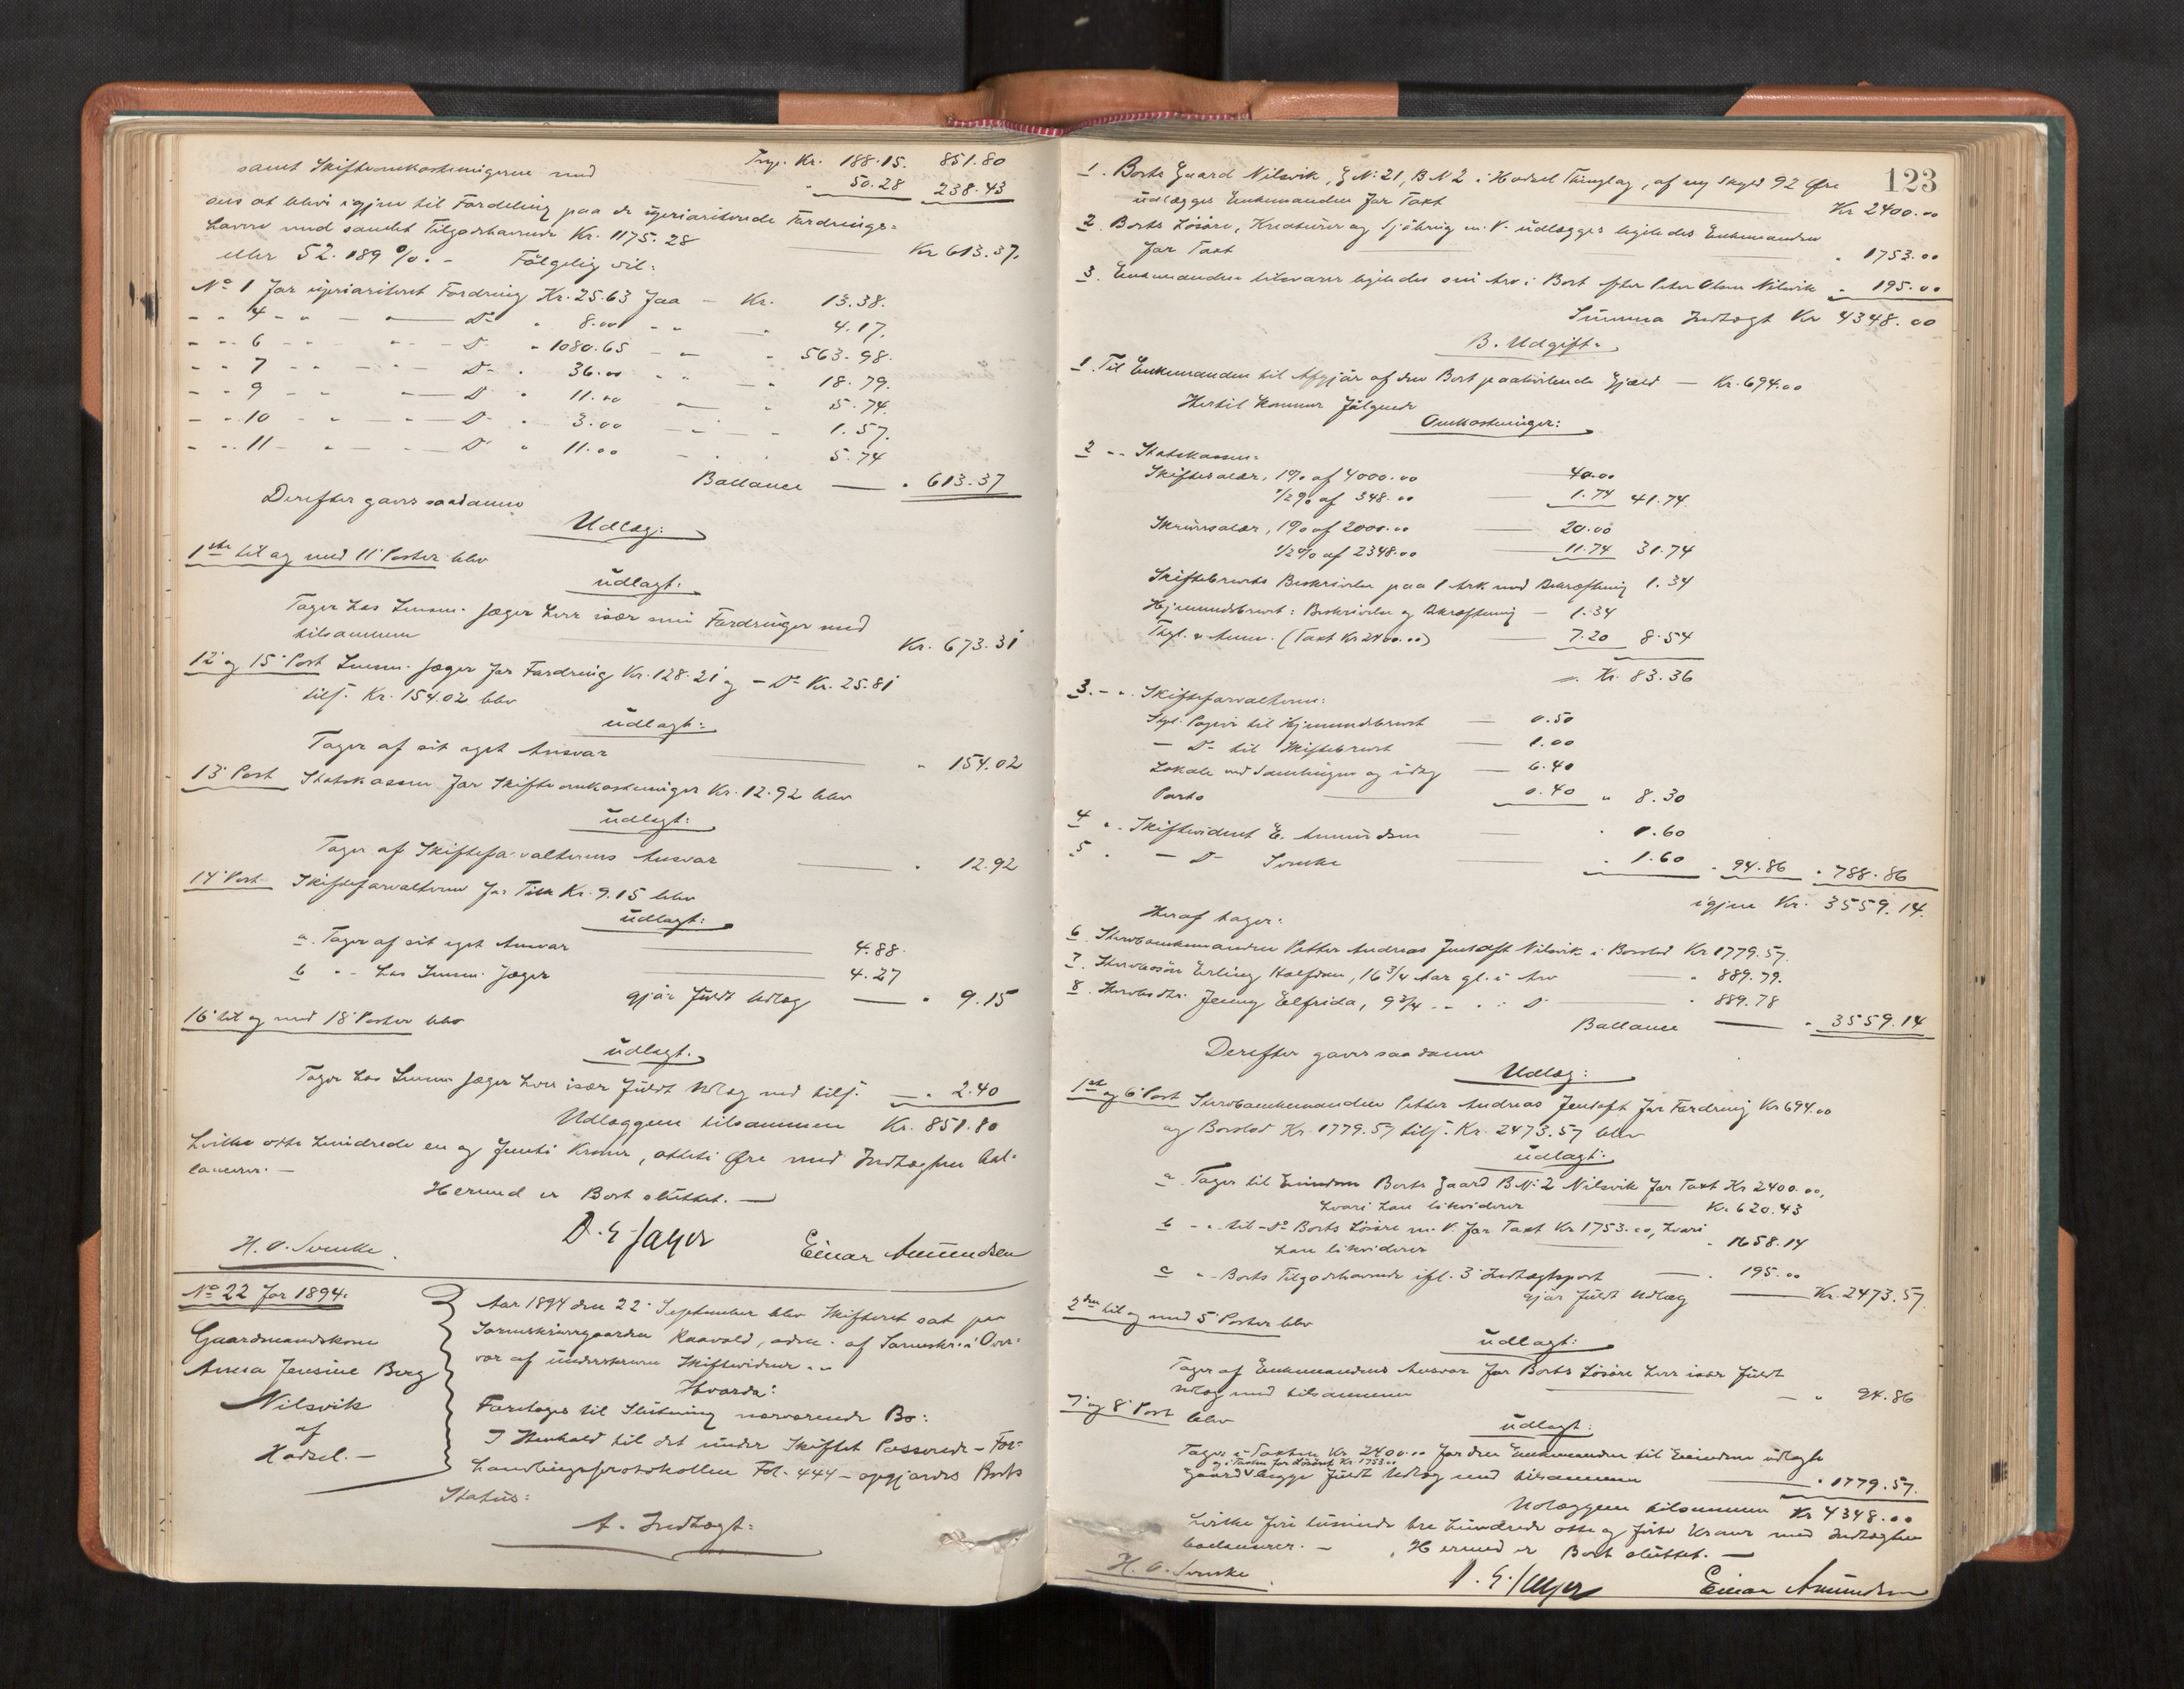 Trsp. Kr. 188.15. 851.80
samt Skifteomkostningerne med " 50.28 238.43
saa at blive igjen til Fordeling paa de upriviterede Fordrings-
havere med samlet Tilgodehavende Kr. 1175.28 Kr 613.37.
eller 52.189 %. - Følgelig vil:
No 1 for upriviteret Fordring Kr. 25.63 faa - Kr. 13.38.
- - 4 - " - Do " 8.00 - " - " 4.17.
- - 6 - - " - Do " 1080.65 - " - " 563.98.
- - 7 - - " - Do " 36.00 " " - " 18.79.
- - 9 - - " - Do " 11.00 - " 5.74.
- - 10 - " - " - Do " 3.00 - " - 1.57.
- - 11 - " - " - Do " 11.00 - " 5.74
Ballance - " 613.37
Derefter gaves saadanne
Udlæg:
1ste til og med 11' Poster blev
udlagt:
Tages hos Lensm. Jæger hver især sine Fordringer med
tilsammen Kr. 673.31
12' og 15' Post Lensm. Jæger for Fordring Kr. 128.21 og - Do Kr. 25.81
tils. Kr. 154.02 blev
udlagt:
Tages af sit eget Ansvar " 154.02
13' Post Statskassen for Skifteomkostninger Kr. 12.92 blev
udlagt:
Tages af Skifteforvalterens Ansvar " 12.92
14' Post Skifteforvalteren for Tilk. Kr. 9.15 blev
udlagt:
a. Tages af sit eget Ansvar 4.88
b - " hos Lensm. Jæger 4.27
gjør fuldt Udlæg - " 9.15
16' til og med 18' Poster blev
udlagt.
Tages hos Lensm. Jæger hver især fuldt Udlæg med tils. - " 2.40
Udlæggene tilsammen Kr. 851.80
hvilke otte hundrede en og femti Kroner, otteti Øre med Indtægten bal-
lancerer. -
Hermed er Boet sluttet. -
H. O. Svenke. D. E. Jæger Einar Amundsen
No 22 for 1894.
Gaardmandskone
Anna Jensine Berg
Nilsvik
af
Hadsel. -
Aar 1894 den 22' September blev Skifteret sat paa
Sorenskrivergaarden Raavold, adm. af Sorenskr. i Over-
vær af underskrevne Skiftevidner. -
Hvorda:
Foretages til Slutning nærværende Bo:
I Henhold til det under Skiftet Passerede - For-
handlingsprotokollen Fol. 444 - opgjordes Boets
Status:
A. Indtægt:
123
1. Boets Gaard Nilsvik, G No 21, B No 2 i Hadsel Thinglag, af ny Skyld 92 Øre
udlægges Enkemanden for Taxt Kr 2400.00
2. Boets Løsøre, Kreaturer og Sjøbrug m. V. udlægges ligeledes Enkemanden
for Taxt " 1753.00
3. Enkemanden tilsvarer ligeledes sin Arv i Boet efter Peter Olsen Nilsvik " 195.00
Summa Indtægt Kr 4348.00
B. Udgift.
1. Til Enkemanden til Afgjør af den Boet paahvilende Gjæld - Kr. 694.00
Hertil kommer følgende
Omkostninger:
2 - " Statskassen:
Skiftesalær, 1% af 4000.00 40.00
1/2% af 348.00 1.74 41.74
Skriversalær, 1% af 2000.00 20.00
1/2% af 2348.00 11.74 31.74
Skiftebrevets Beskrivelse paa 1 Ark med Bekræftning 1.34
Hjemmelsbrevet: Beskrivelse og Bekræftning - 1.34
Thgl. & Anm. (Taxt Kr 2400.00) 7.20 8.54
Kr. 83.36
3. - ". Skifteforvalteren:
Stpl. Papir til Hjemmelsbrevet 0.50
- Do til Skiftebrevet 1.00
Lokale ved Samlingen og idag 6.40
Porto 0.40 " 8.30
4 ". Skiftevidnet E. Amundsen " 1.60
5 " - Do Svenke " 1.60 " 94.86 " 788.86
igjen Kr. 3559.14.
Heraf tager:
6. Stervboenkemanden Petter Andreas Jentoft Nilsvik i Boeslod Kr 1779.57.
7. Stervbosøn Erling Halfdan, 16 3/4 Aar gl. i Arv " 889.79.
8. Stervbodtr. Jenny Elfrida, 9 3/4 - - " : Do " 889.78
Ballance - " 3559.14
Derefter gaves saadanne
Udlæg:
1ste og 6' Post Stervboenkemanden Petter Andreas Jentoft for Fordring Kr 694.00
og Boeslod Kr. 1779.57 tils. Kr. 2473.57 blev
udlagt:
a. Tages til Eiendom Boets Gaard B No 2 Nilsvik for Taxt Kr 2400.00,
hvori han likviderer Kr. 620.43
b - " til - Do Boets Løsøre m. V. for Taxt Kr 1753.00, hvori
han likviderer " 1658.14
c " - Boets Tilgodehavende ifl. 3' Indtægtspost - " 195.00
gjør fuldt Udlæg Kr. 2473.57.
2den til og med 5' Poster blev
udlagt:
Tages af Enkemandens Ansvar for Boets Løsøre hver især fuldt
Udlæg med tilsammen - " 94.86
7' og 8' Post blev
udlagt:
Tages i Taxten Kr. 2400.00 for den Enkemanden til Eiendom udlagte
og i Taxten for Løsøret Kr. 1753.00
Gaard begge fuldt Udlæg med tilsammen " 1779.57.
Udlæggene tilsammen Kr 4348.00
hvilke fire tusinde tre hundrede otte og firti Kroner med Indtægten
ballancerer. - Hermed er Boet sluttet. -
H. O. Svenke. D. E. Jæger Einar Amundsen